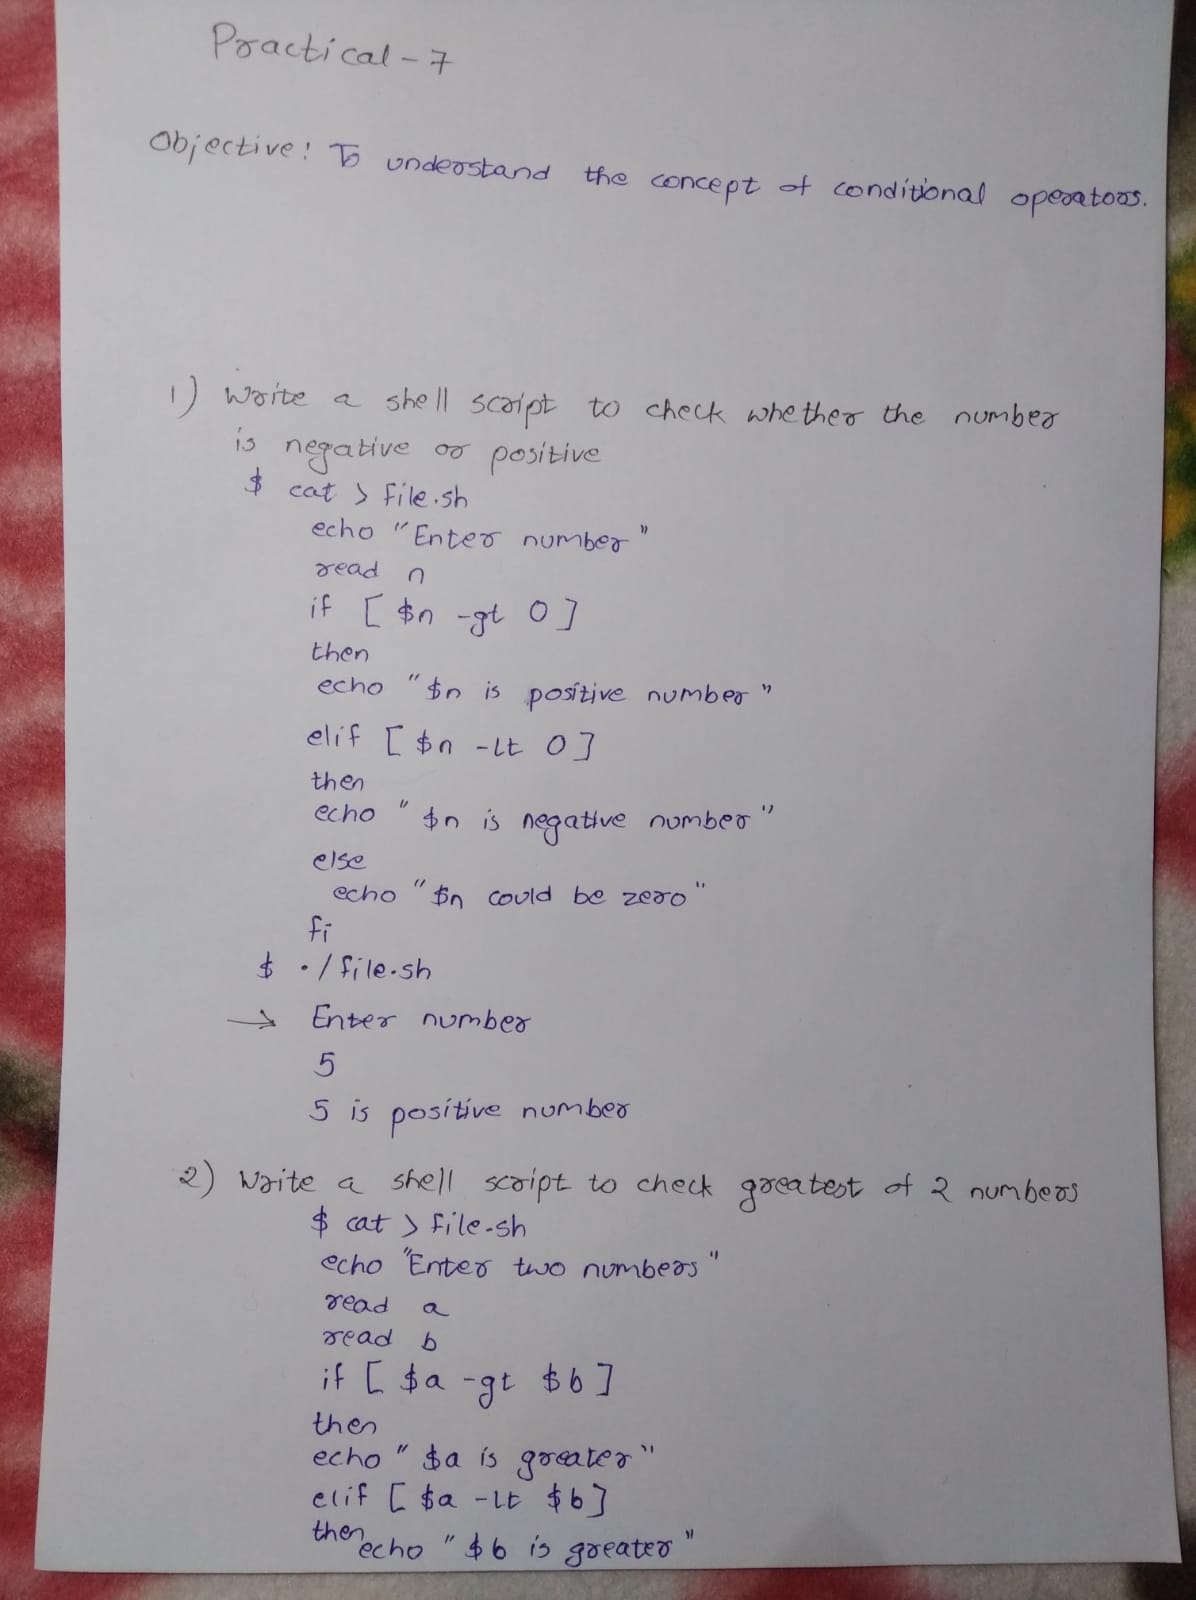 Practical - 7
Objective: To understand the concept of conditional operators.
1) Write a shell script to check whether the number
is negative or positive
$ cat > file.sh
echo "Enter number"
read n
if [ $n -gt 0 ]
then
echo "$n is positive number"
elif [ $n -lt 0 ]
then
echo "$n is negative number"
else
echo "$n could be zero"
fi
$ ./file.sh
→ Enter number
5
5 is positive number
2) Write a shell script to check greatest of 2 numbers
$ cat > file.sh
echo "Enter two numbers"
read a
read b
if [ $a -gt $b ]
then
echo "$a is greater"
elif [ $a -lt $b ]
then
echo "$b is greater"